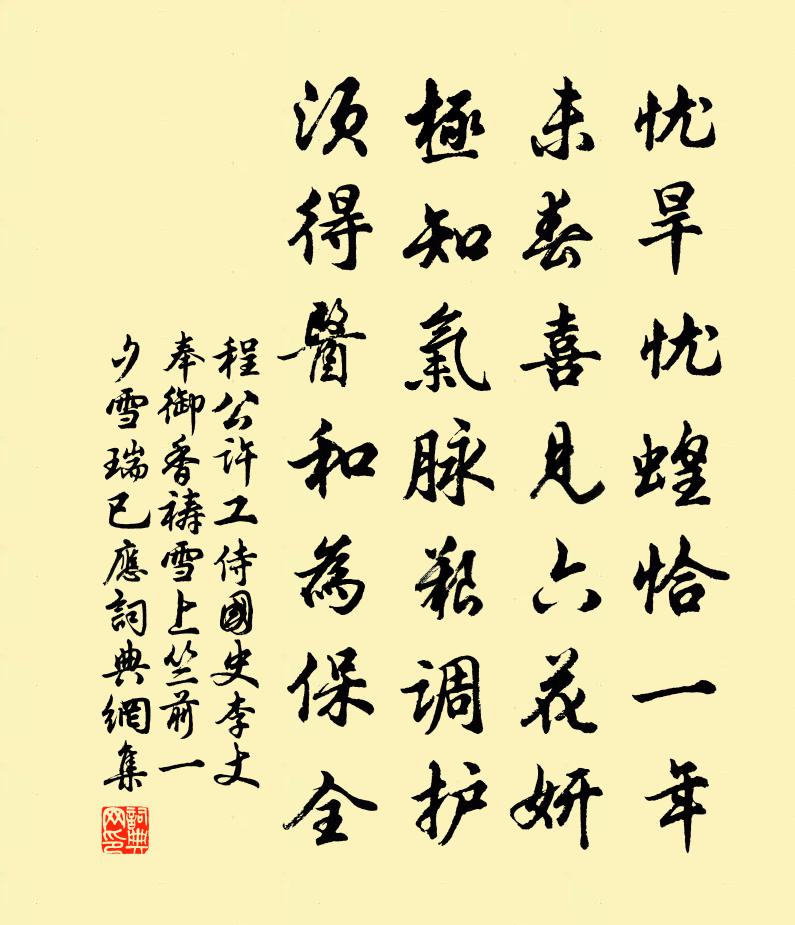 忧旱忧蝗恰一年
未春喜见六花妍
極知氣脉艱调护
须得醫和為保全
程公许工侍國史李丈
奉御香祷雪上竺前一
夕雪瑞已應詞典網集
詞典
网印